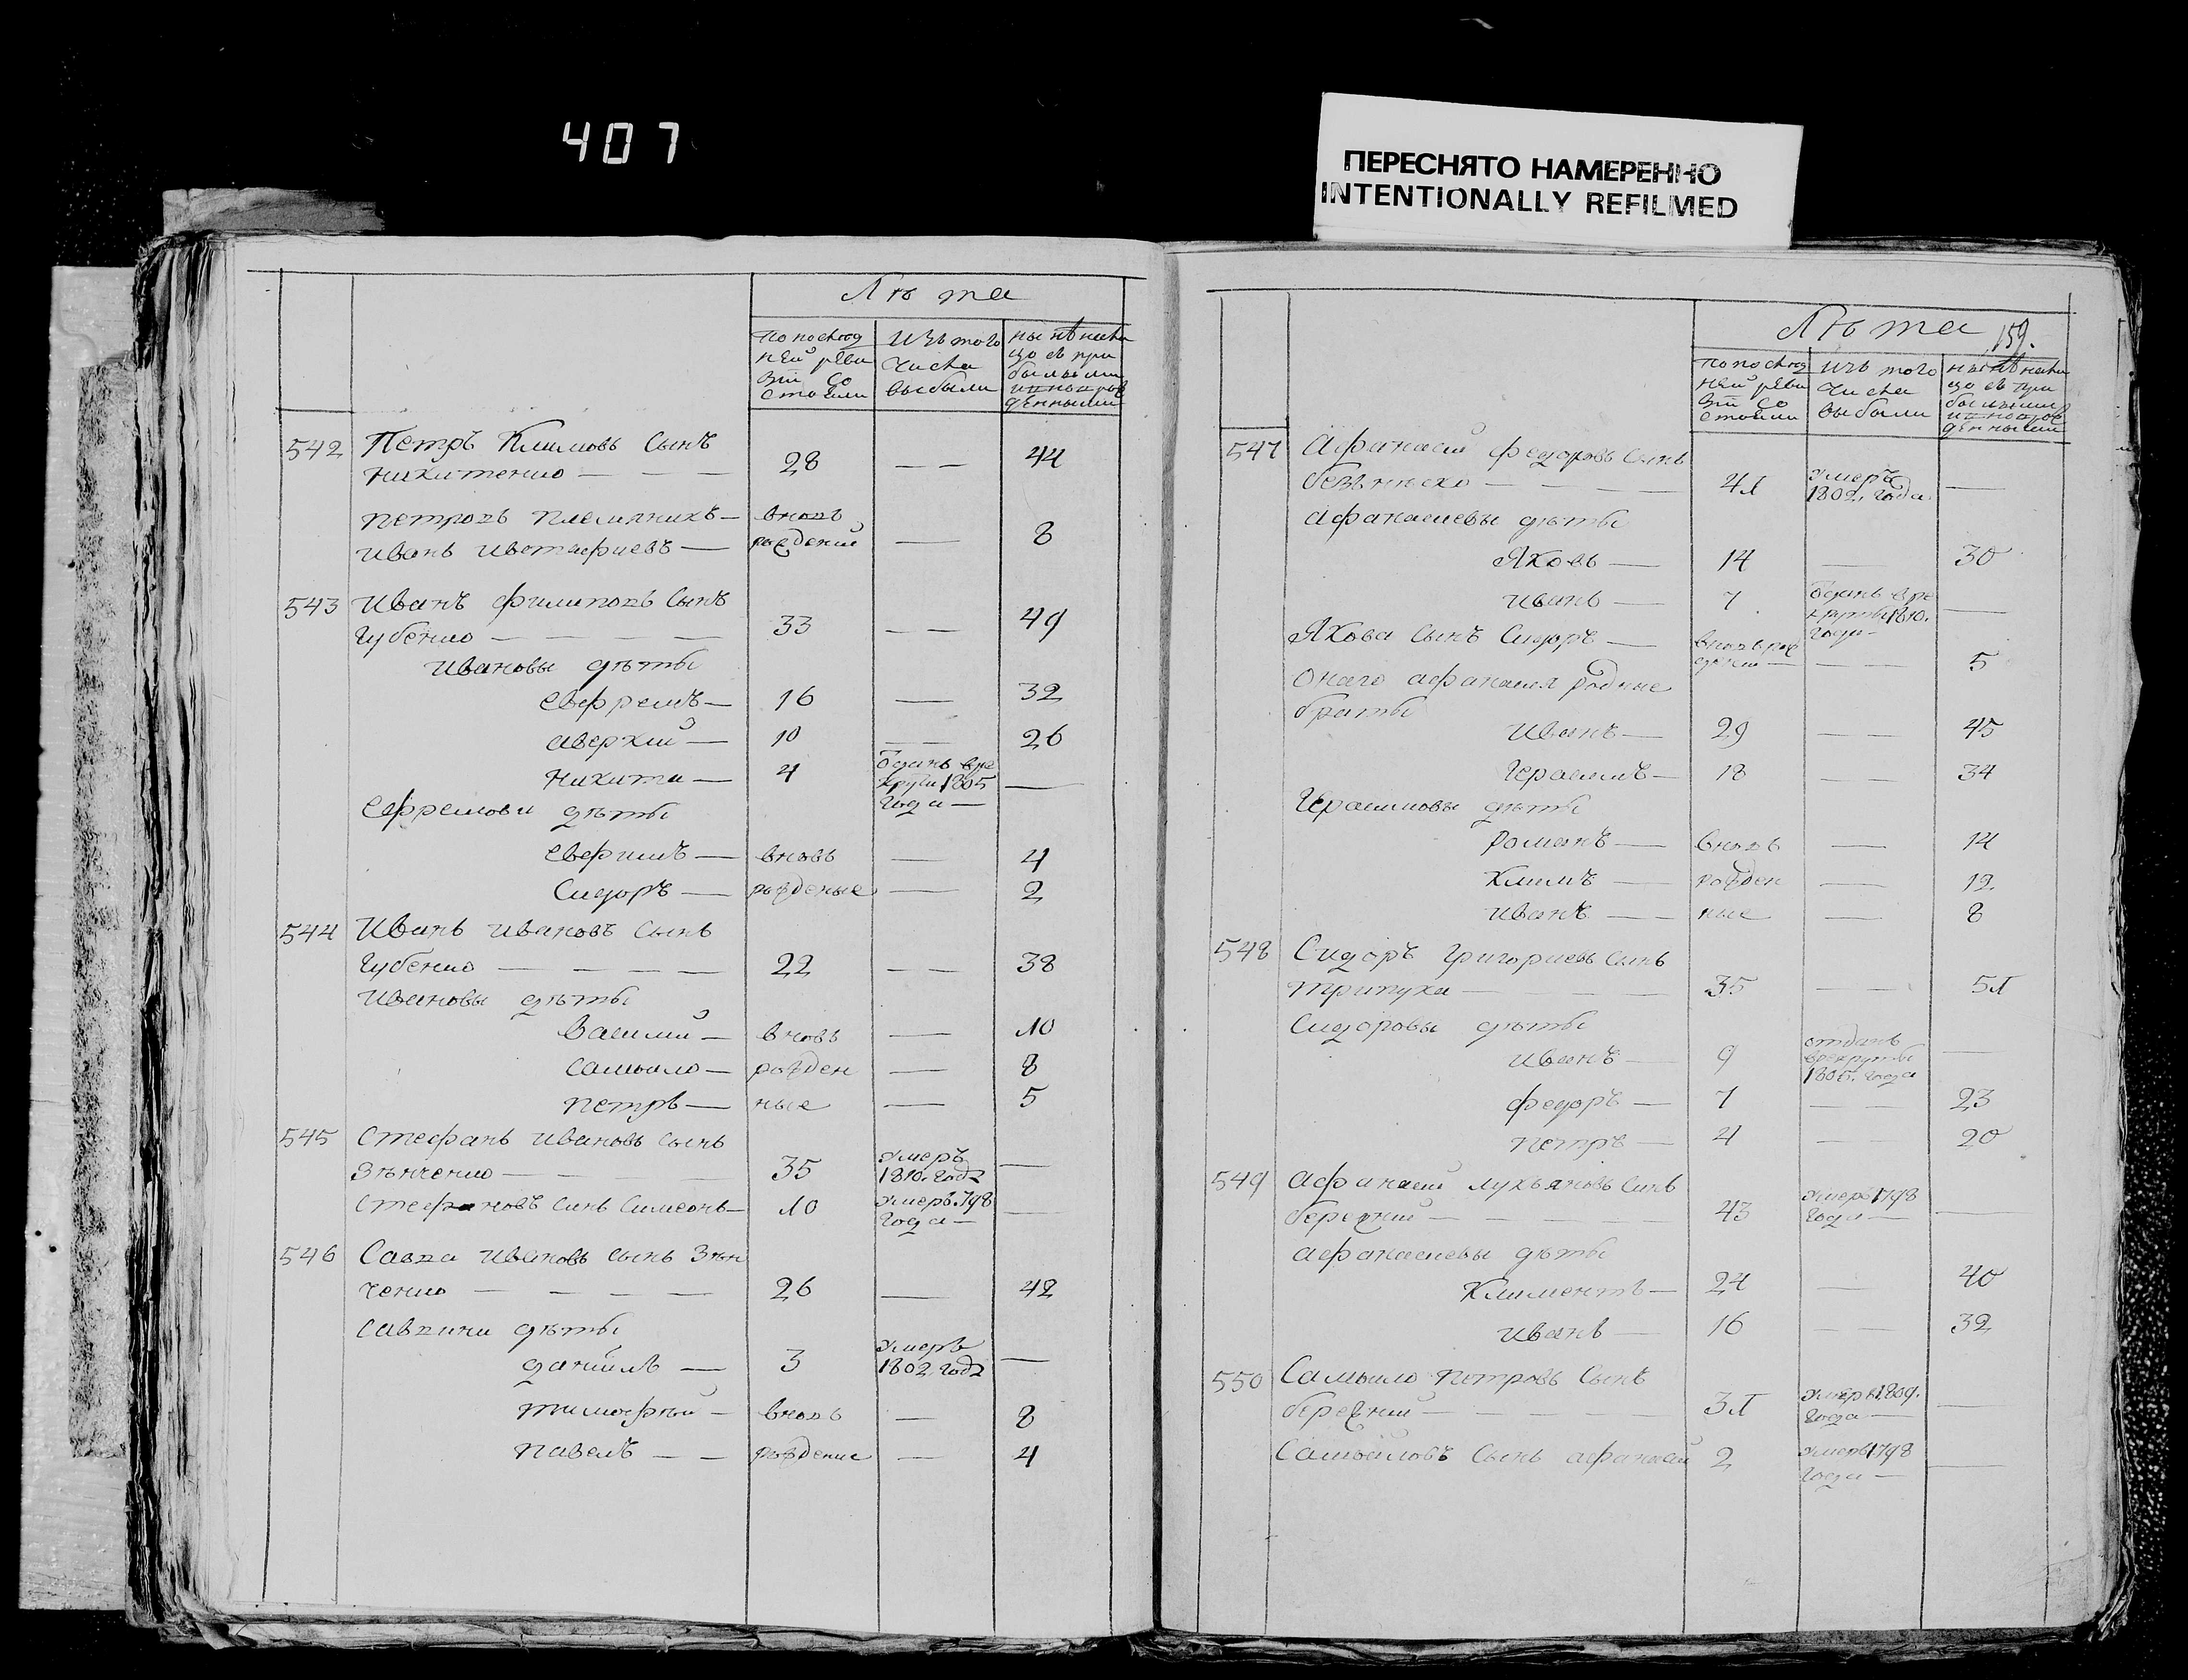 407
ПЕРЕСНЯТО НАМЕРЕННО
INTENTIONALLY REFILMED
Лѣта
по послѣд изъ того нынѣ налиц
ней реви числа цо съ при
зіи со выбыли былыми
стояли и новорож
денными
542 Петръ Климовъ сынъ
Никитенко — — — 28 — — 44
Петровъ племянникъ — вновь
Иванъ Ивстафиевъ — рожденій — 8
543 Иванъ Филиповъ сынъ
Губенко — — — — 33 — — 49
Ивановы дѣты
Евфремъ — 16 — 32
Аверкий — 10 — 26
Никита — 4 одань вре
круты 1805 —
года —
Ефремови дѣты
Евфимъ — вновь — 4
Сидоръ — рожденые — 2
544 Иванъ Ивановъ сынъ
Губенко — — — — 22 — — 38
Ивановы дѣты
Василий — вновь — 10
Самыло — рожден — 8
Петръ — ные — 5
545 Стефанъ Ивановъ сынъ
Зѣнченко — — — 35 умеръ
1810. года —
Стефановъ синъ Симеонъ — 10 умеръ 798
года — —
546 Савва Ивановъ сынъ Зѣн
ченко — — — — 26 — 42
Саввини дѣты
Даніилъ — 3 умеръ
1802 года —
Тимофѣй — вновь — 8
Павелъ — — рождение — 4
Лѣта 159.
по послѣд изъ того нынѣ налиц
ней реви числа цо съ при
зіи со выбыли былыми
стояли и новорож
денными
547 Афанасий Федоровъ сынъ
— — — — 41 умеръ
1802. года —
Афанасиевы дѣты
Яковъ — 14 — 30
Иванъ — 7 одань вре
круты 1810. —
года —
Якова сынъ Сидоръ — вновь рож
— — 5
Онаго Афанасия родные
браты
Иванъ — 29 — — 45
Герасимъ — 18 — — 34
Герасимовы дѣты
Романъ — вновь — 14
Климъ — рожден — 12.
Иванъ — — ные — 8
548 Сидоръ Григориевъ сынъ
Трипуха — — — 35 — — 51
Сидоровы дѣты
Иванъ — 9 отданъ
врекруты
1805. года —
Федоръ — 7 — — 23
Петръ — 4 — — 20
549 Афанасий Лукьяновъ синъ
бережний — — — — 43 умеръ 1798
года — —
Афанасиевы дѣты
Климентъ — 24 — 40
Иванъ — 16 — — 32
550 Самыло Петровъ сынъ
бережний — — — — 31 умеръ 1809.
года — —
Самойловъ сынъ Афанасий 2 умеръ 1798
года — —